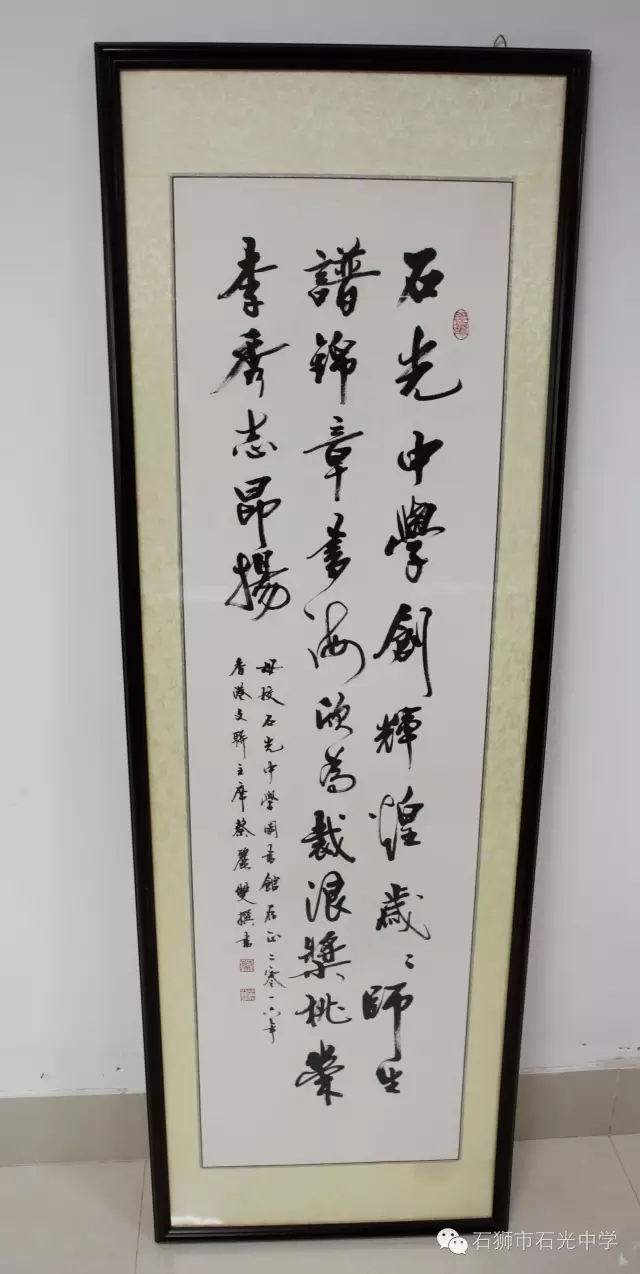 石光中學創輝煌歲〻師生
譜錦章書海欣為裁浪槳桃榮
李秀志昂揚
母校石光中學圖書館存正二零一六年
香港文聯主席蔡麗雙撰書
石狮市石光中学